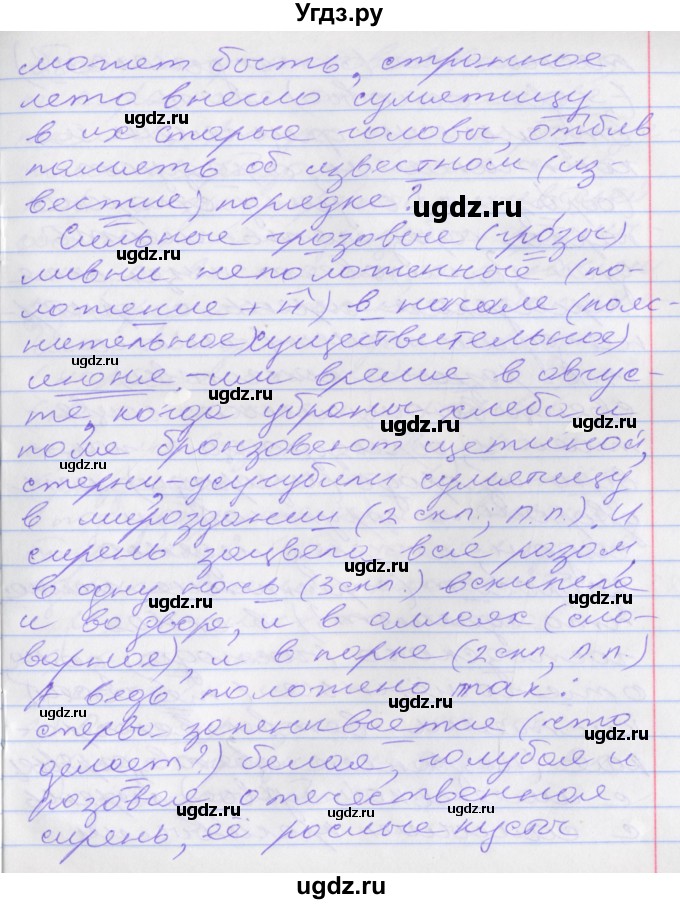 Угдз.ру
может быть, странное
лето внесло сумятицу
в их старые головы, отбив
память об известном (из-
вестие) порядке?
ugdz.ru
Сильные грозовые (грозы)
ливни неположенные (по-
ложение + н) в начале (пояс-
нительное) существительное)
июня, - им время в авгус-
те, когда убраны хлеба и
поля бронзовеют щетиной
стерни, - усугубили сумятицу
в мироздании (2 скл.; П.п.). И
сирень зацвела вся разом,
в одну ночь (3 скл.) вскипела
и во дворе, и в аллеях (сло-
варное), и в парке (2 скл, П.п.)
А ведь положено так:
стерва запенивается (что
делает?) белая, голубая и
розовая отечественная
сирень, её рослые кусты
ugdz.ru